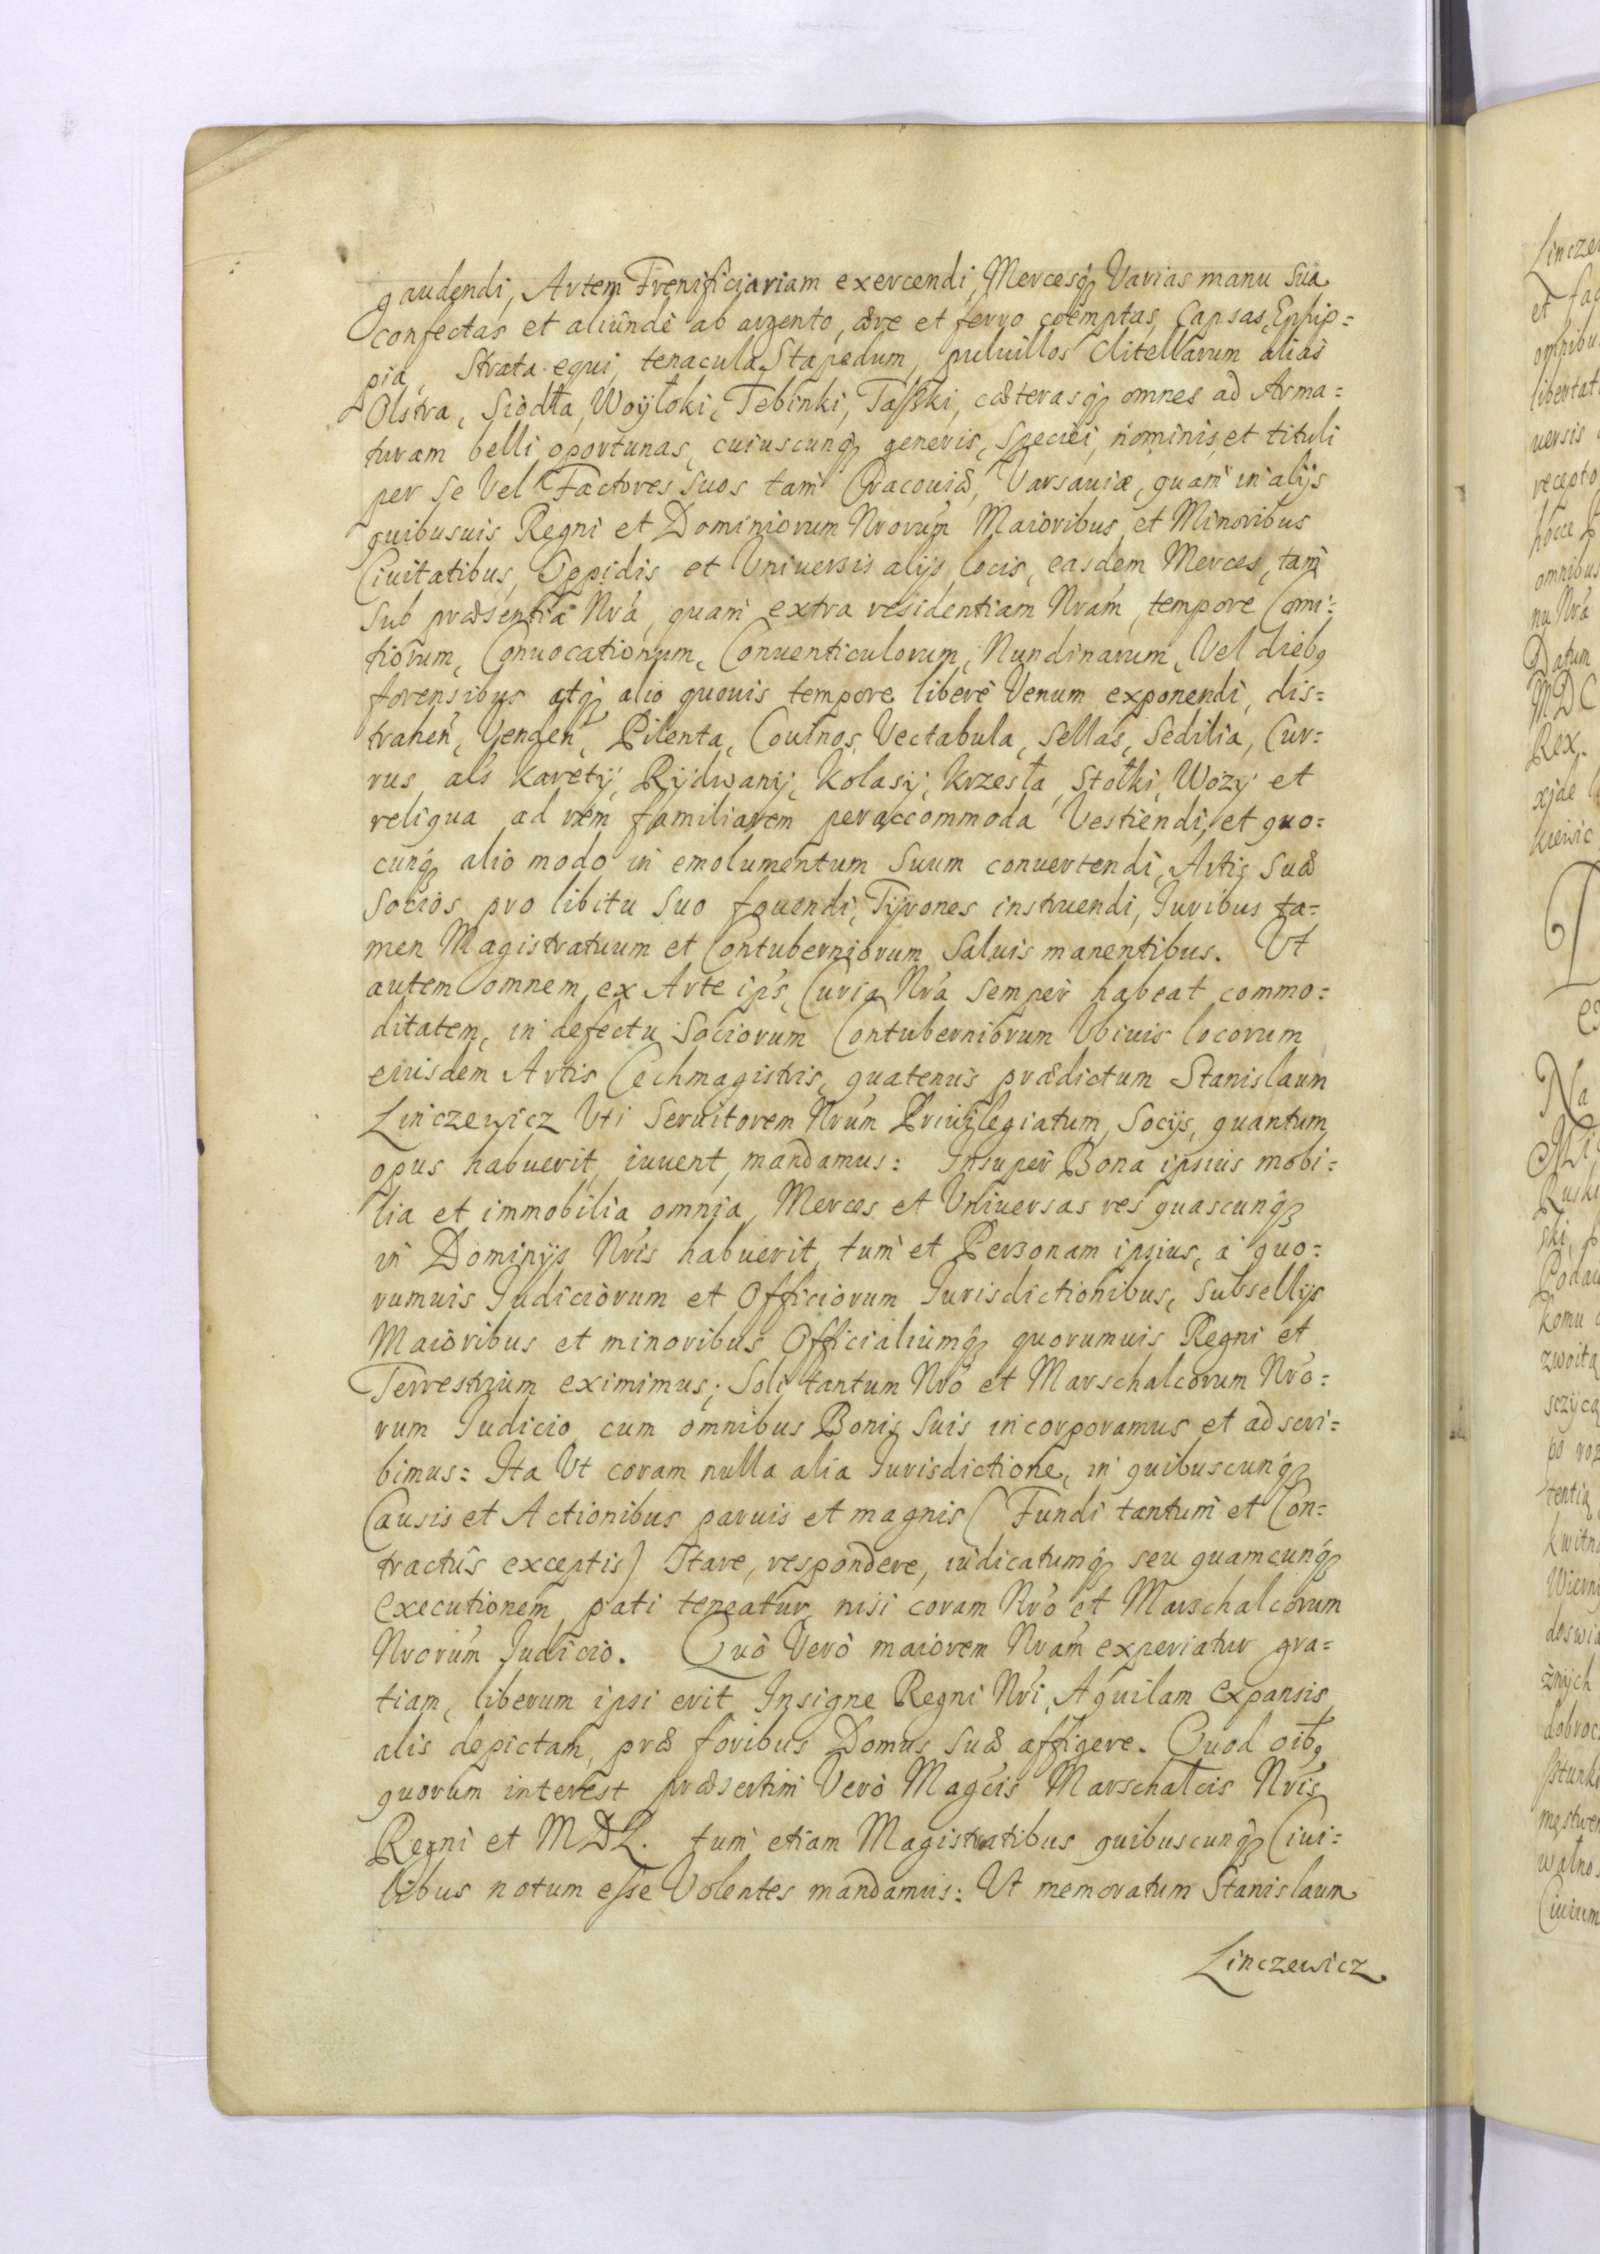 gaudendi, Artem Frenificiariam exercendi, Mercesq3 Varias manu sua
confectas et aliundè ab argento, ære et ferro coemptas, Capsas, Ephip=
pia, Strata equi, tenacula Stapedum, puluillos Clitellarum alias
Olstra, Siodła, Woyłoki, Tebinki, Taszki, cæterasq3 omnes ad Arma=
turam belli oportunas, cuiuscunq3 generis, speciei, nominis, et tituli
per se Vel Factores suos tam Cracouiæ, Varsauiæ, quam in alijs
quibusuis Regni et Dominiorum Nrorum Maioribus et Minoribus
Ciuitatibus, Oppidis et Vniuersis alijs locis, easdem Merces, tam
sub præsentia Nra, quam extra residentiam Nram, tempore Comi=
tiorum, Conuocationum, Conuenticulorum, Nundinarum, Vel dieb9
forensibus atq3 alio quouis tempore liberè Venum exponendi, dis=
trahen, Venden, Pilenta, Couinos, Vectabula, Sellas, Sedilia, Cur=
rus als Karety, Rydwany, Kolasy, Krzesła, Stołki, Wozy et
reliqua ad rem familiarem peraccommoda Vestiendi, et quo=
cunq3 alio modo in emolumentum suum conuertendi, Artis suæ
Socios pro libitu suo fouendi, Tyrones instruendi, Iuribus ta=
men Magistratuum et Contuberniorum saluis manentibus. Vt
autem omnem ex Arte ips, Curia Nra semper habeat commo=
ditatem, in defectu Sociorum Contuberniorum Vbiuis locorum
eiusdem Artis Cechmagistris, quatenus prædictum Stanislaum
Linczewicz Vti Seruitorem Nrum Priuilegiatum, Socijs, quantum
opus habuerit, iuuent, mandamus: Insuper Bona ipsius mobi=
lia et immobilia omnia, Merces et Vniuersas res quascunq3
in Dominijs Nris habuerit, tum et Personam ipsius, a quo=
rumuis Iudiciorum et Officiorum Iurisdictionibus, Subsellijs
Maioribus et minoribus Officialiumq3 quorumuis Regni et
Terrestrium eximimus; Soli tantum Nro et Marschalcorum Nro=
rum Iudicio cum omnibus Bonis suis incorporamus et adscri=
bimus: Ita Vt coram nulla alia Iurisdictione, in quibuscunq3
Causis et Actionibus paruis et magnis (Fundi tantum et Con=
tractûs exceptis) Stare, respondere, iudicatumq3 seu quamcunq3
executionem pati teneatur, nisi coram Nro et Marschalcorum
Nrorum Iudicio. Quò Verò maiorem Nram experiatur gra=
tiam, liberum ipsi erit Insigne Regni Nri, Aquilam expansis
alis depictam, præ foribus Domus suæ affigere. Quod oib9
quorum interest præsertim Verò Magcis Marschalcis Nris
Regni et MDL. tum etiam Magistratibus quibuscunq3 Ciui=
libus notum esse Volentes mandamus: Vt memoratum Stanislaum
Linczewicz.